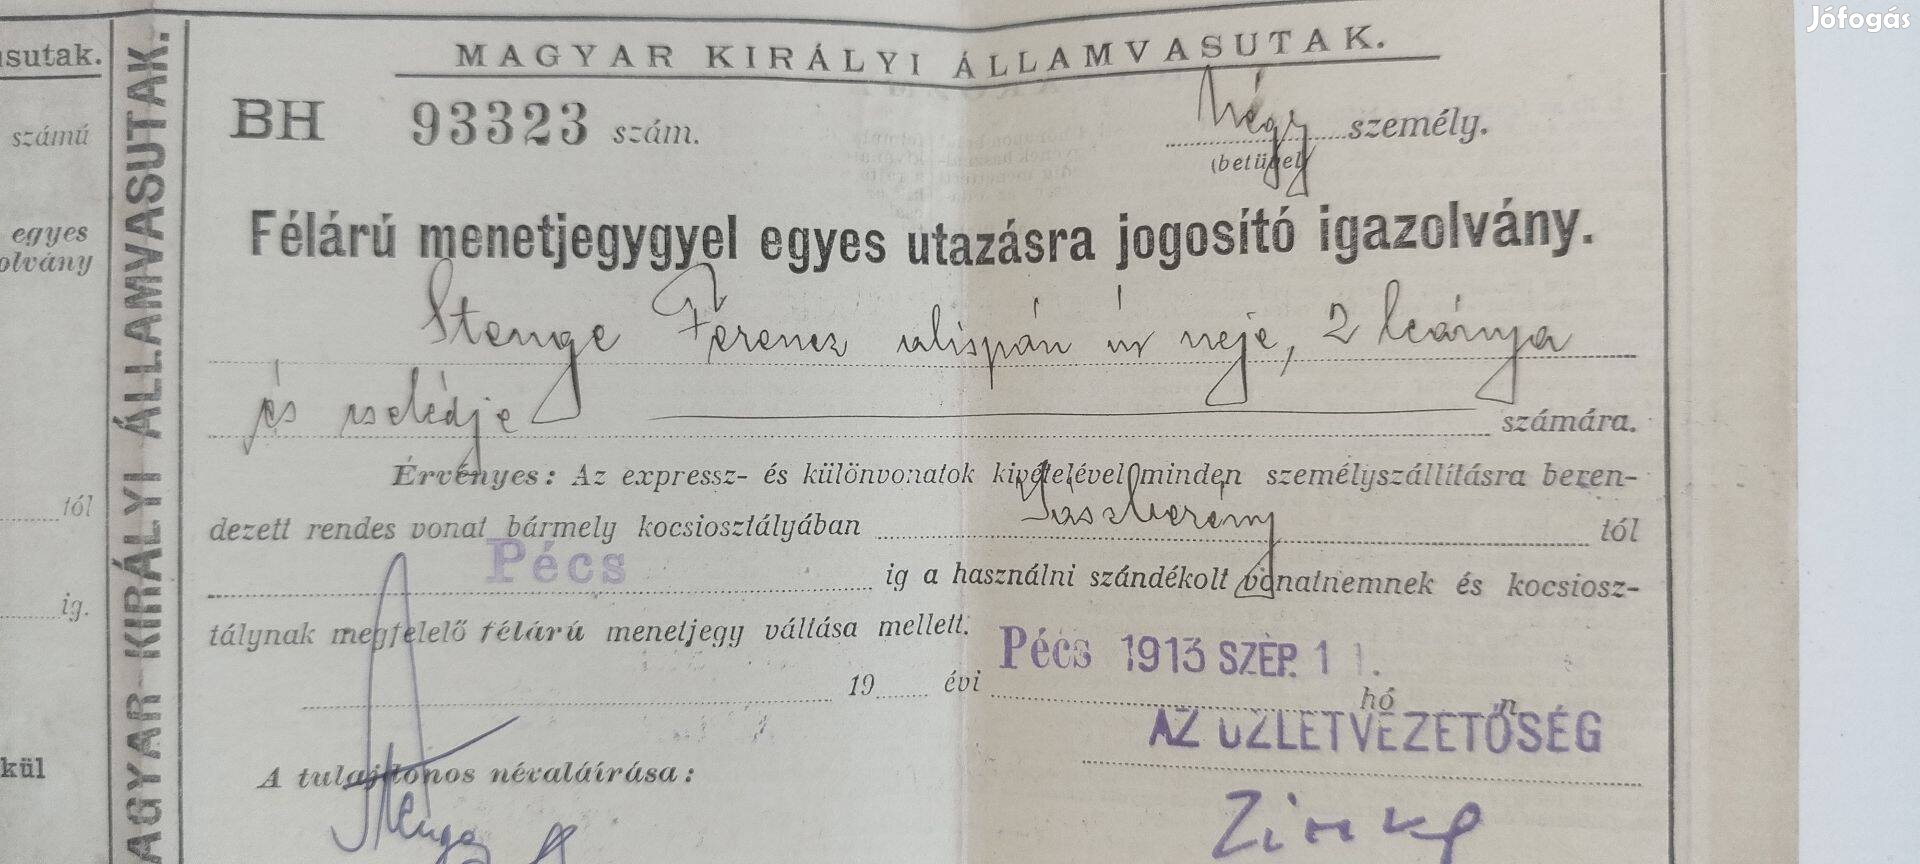 Jófogás
MAGYAR KIRÁLYI ÁLLAMVASUTAK.
asutak.
BH 93323 szám.
Négy személy.
(betűgel)
számú
Félárú menetjegygyel egyes utazásra jogosító igazolvány.
egyes
olvány
Stenge Ferencz alispán úr neje, 2 leánya
és cselédje számára.
Érvényes: Az expressz- és különvonatok kivételével minden személyszállításra beren-
dezett rendes vonat bármely kocsiosztályában Jászberény tól
tól
Pécs ig a használni szándékolt vonatnemnek és kocsiosz-
ig.
tálynak megfelelő félárú menetjegy váltása mellett.
Pécs 1913 SZEP. 1 1.
19 évi hó n
AZ ÜZLETVEZETŐSÉG
kül
A tulajdonos névaláírása:
Stenge
MAGYAR KIRÁLYI ÁLLAMVASUTAK.